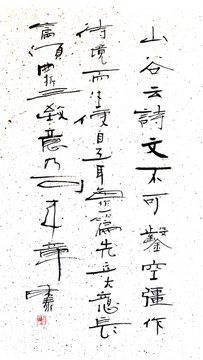 山谷云詩文不可鑿空彊作
待境而生便自工耳每作一篇先立大意長
篇須曲折三致意乃可成章